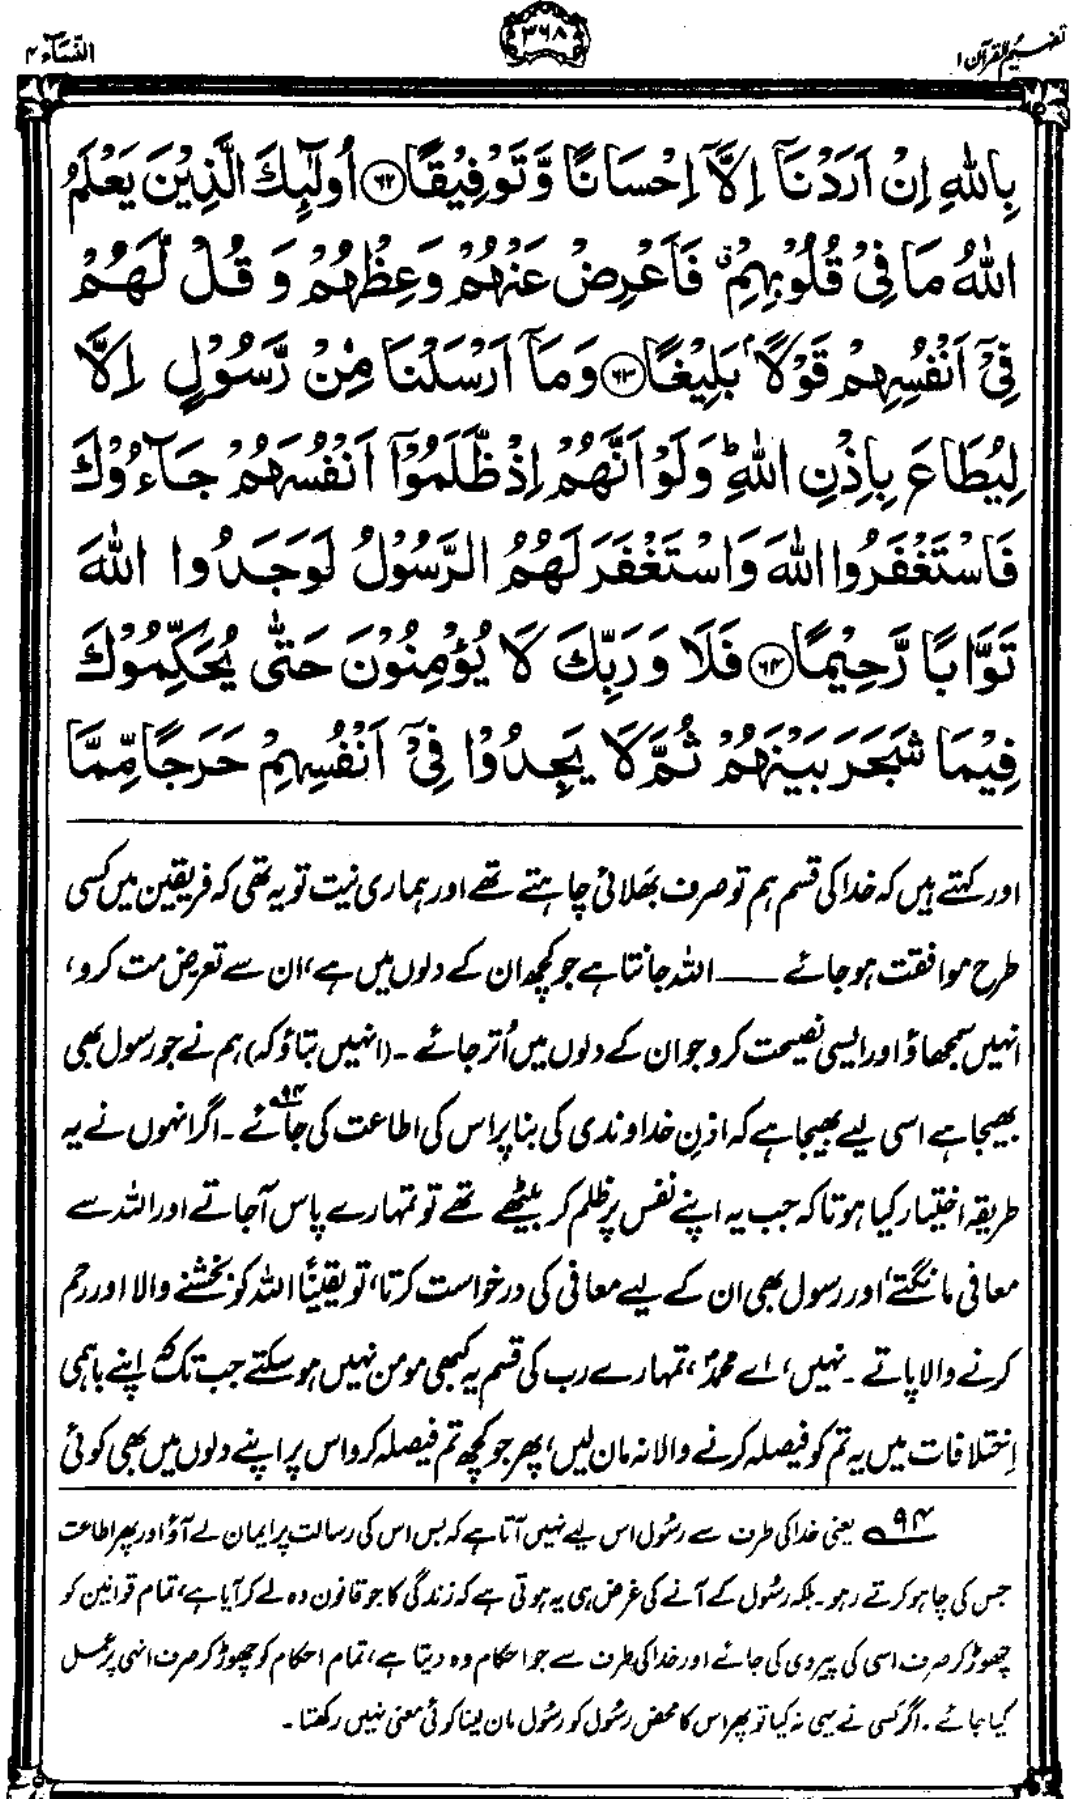 تفہیم القرآن ۱
۳۶۸
النّسآء ۴
بِاللّٰهِ اِنْ اَرَدْنَاۤ اِلَّاۤ اِحْسَانًا وَّتَوْفِیْقًا ﴿۶۲﴾ اُولٰٓىِٕكَ الَّذِیْنَ یَعْلَمُ
اللّٰهُ مَا فِیْ قُلُوْبِهِمْ ۗ فَاَعْرِضْ عَنْهُمْ وَعِظْهُمْ وَ قُلْ لَّهُمْ
فِیْۤ اَنْفُسِهِمْ قَوْلًاۢ بَلِیْغًا ﴿۶۳﴾ وَمَاۤ اَرْسَلْنَا مِنْ رَّسُوْلٍ اِلَّا
لِیُطَاعَ بِاِذْنِ اللّٰهِ ؕ وَلَوْ اَنَّهُمْ اِذْ ظَّلَمُوْۤا اَنْفُسَهُمْ جَآءُوْكَ
فَاسْتَغْفَرُوا اللّٰهَ وَاسْتَغْفَرَ لَهُمُ الرَّسُوْلُ لَوَجَدُوا اللّٰهَ
تَوَّابًا رَّحِیْمًا ﴿۶۴﴾ فَلَا وَرَبِّكَ لَا یُؤْمِنُوْنَ حَتّٰی یُحَكِّمُوْكَ
فِیْمَا شَجَرَ بَیْنَهُمْ ثُمَّ لَا یَجِدُوْا فِیْۤ اَنْفُسِهِمْ حَرَجًا مِّمَّا
اور کہتے ہیں کہ خدا کی قسم ہم تو صرف بھَلائی چاہتے تھے اور ہماری نیت تو یہ تھی کہ فریقین میں کسی
طرح موافقت ہوجائے ـــــ اللہ جانتا ہے جو کچھ ان کے دلوں میں ہے، ان سے تعرض مت کرو،
انہیں سمجھاؤ اور ایسی نصیحت کرو جو ان کے دلوں میں اُتر جائے ۔ (انہیں بتاؤ کہ) ہم نے جو رسول بھی
بھیجا ہے اسی لیے بھیجا ہے کہ اذنِ خداوندی کی بنا پر اس کی اطاعت کی جائے۹۴ ۔ اگر انہوں نے یہ
طریقہ اختیار کیا ہوتا کہ جب یہ اپنے نفس پر ظلم کر بیٹھے تھے تو تمہارے پاس آجاتے اور اللہ سے
معافی مانگتے، اور رسول بھی ان کے لیے معافی کی درخواست کرتا، تو یقینًا اللہ کو بخشنے والا اور رحم
کرنے والا پاتے ۔ نہیں، اے محمدؐ، تمہارے رب کی قسم یہ کبھی مومن نہیں ہوسکتے جب تک کہ اپنے باہمی
اِختلافات میں یہ تم کو فیصلہ کرنے والا نہ مان لیں، پھر جو کچھ تم فیصلہ کرو اس پر اپنے دلوں میں بھی کوئی
۹۴ یعنی خدا کی طرف سے رسُول اس لیے نہیں آتا ہے کہ بس اس کی رسالت پر ایمان لے آؤ اور پھر اطاعت
جس کی چاہو کرتے رہو۔ بلکہ رسُول کے آنے کی غرض ہی یہ ہوتی ہے کہ زندگی کا جو قانون وہ لے کر آیا ہے، تمام قوانین کو
چھوڑ کر صرف اسی کی پیروی کی جائے اور خدا کی طرف سے جو احکام وہ دیتا ہے، تمام احکام کو چھوڑ کر صرف انہی پر عمل
کیا جائے ۔ اگر کسی نے یہی نہ کیا تو پھر اس کا محض رسُول کو رسُول مان لینا کوئی معنی نہیں رکھتا ۔